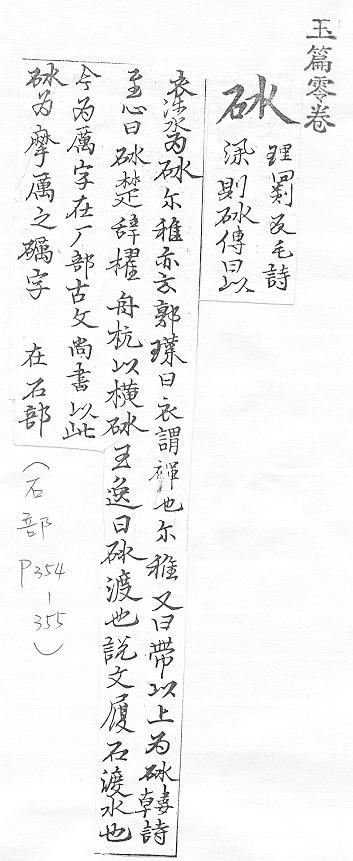 玉篇零卷
砅
理罽反毛詩
深則砅傳曰以
衣涉水为砅尔雅亦云郭璞曰衣謂襌也尔雅又曰帶以上为砅韓詩
至心曰砅楚辞櫂舟杭以橫砅王逸曰砅渡也說文履石渡水也
今为厲字在厂部古文尚書以此
砅为摩厲之礪字 在石部
(石部
P354
-
355)